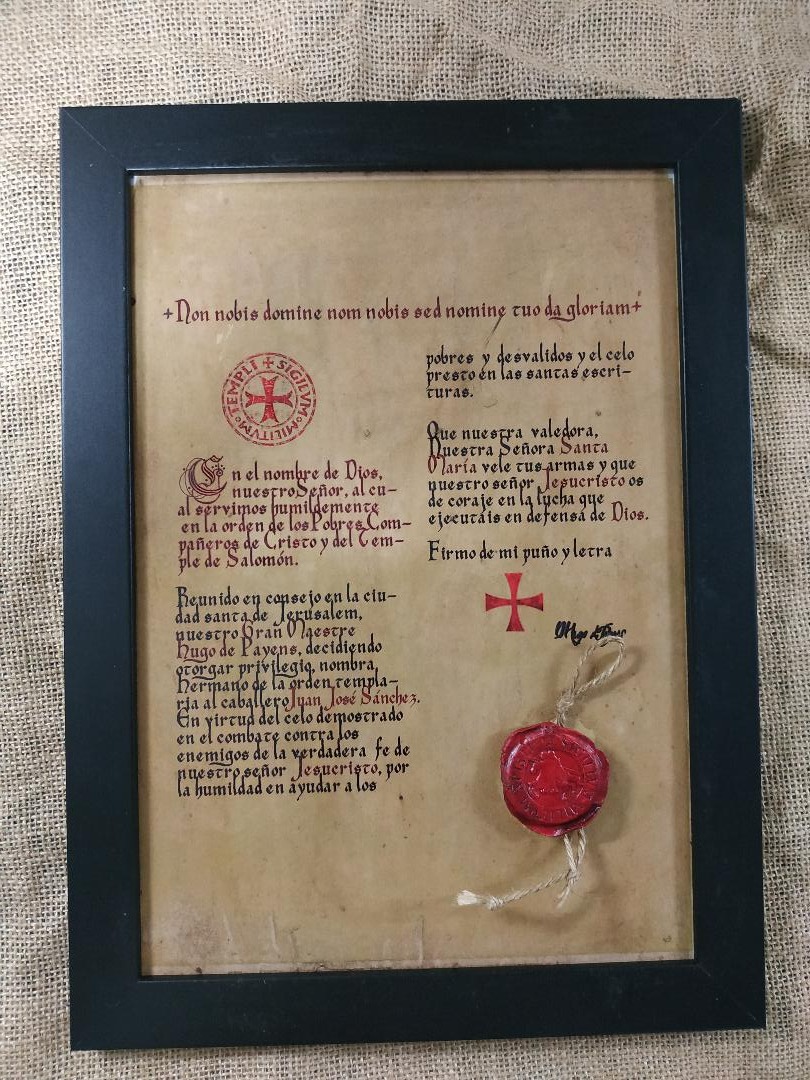 +Non nobis domine nom nobis sed nomine tuo da gloriam+
TEMPLI + SIGILVM • MILITVM •
En el nombre de Dios,
nuestro Señor, al cu-
al servimos humildemente
en la orden de los Pobres Com-
pañeros de Cristo y del Tem-
ple de Salomón.
Reunido en consejo en la ciu-
dad santa de Jerusalem,
nuestro Gran Maestre
Hugo de Payens, decidiendo
otorgar privilegio, nombra,
Hermano de la orden templa-
ria al caballero Juan José Sánchez.
En virtud del celo demostrado
en el combate contra los
enemigos de la verdadera fe de
nuestro señor Jesucristo, por
la humildad en ayudar a los
pobres y desvalidos y el celo
presto en las santas escri-
turas.
Que nuestra valedora,
Nuestra Señora Santa
María vele tus armas y que
nuestro señor Jesucristo os
de coraje en la lucha que
ejecutais en defensa de Dios.
Firmo de mi puño y letra